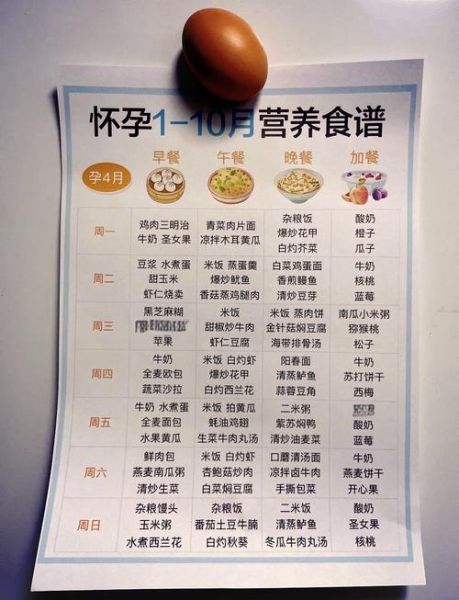 怀孕1-10月营养食谱
孕4月 早餐 午餐 晚餐 加餐
周一
鸡肉三明治
牛奶 圣女果
青菜肉片面
凉拌木耳黄瓜
杂粮饭
爆炒花甲
白灼芥菜
酸奶
橙子
瓜子
周二
豆浆 水煮蛋
甜玉米
虾仁烧卖
米饭 蒸蛋羹
爆炒鱿鱼
香菇蒸鸡腿肉
白菜鸡蛋面
香煎鳗鱼
清炒豆芽
牛奶
核桃
蓝莓
周三
黑芝麻糊
苹果
米饭
甜椒炒牛肉
虾仁豆腐
米饭 蒸肉饼
金针菇焖豆腐
海带排骨汤
南瓜小米粥
猕猴桃
松子
周四
牛奶
全麦欧包
蔬菜沙拉
米饭 白灼虾
爆炒花甲
白灼西兰花
阳春面
清蒸鲈鱼
蒜蓉豆角
牛奶
苏打饼干
西梅
周五
牛奶 水煮蛋
全麦面包
水果黄瓜
米饭 拍黄瓜
蚝油鸡翅
生菜牛肉丸汤
二米粥
紫苏焖鸭
清炒油麦菜
酸奶
蓝莓
周六
鲜肉包
燕麦南瓜粥
清炒生菜
米饭 白灼虾
杏鲍菇炒肉
白菜焖豆腐
口蘑清汤面
凉拌卤牛肉
手撕包菜
牛奶
燕麦饼干
开心果
周日
杂粮馒头
玉米粥
水煮西兰花
杂粮饭
番茄土豆牛腩
白灼秋葵
二米饭
清蒸鲈鱼
冬瓜牛肉丸汤
酸奶
圣女果
核桃